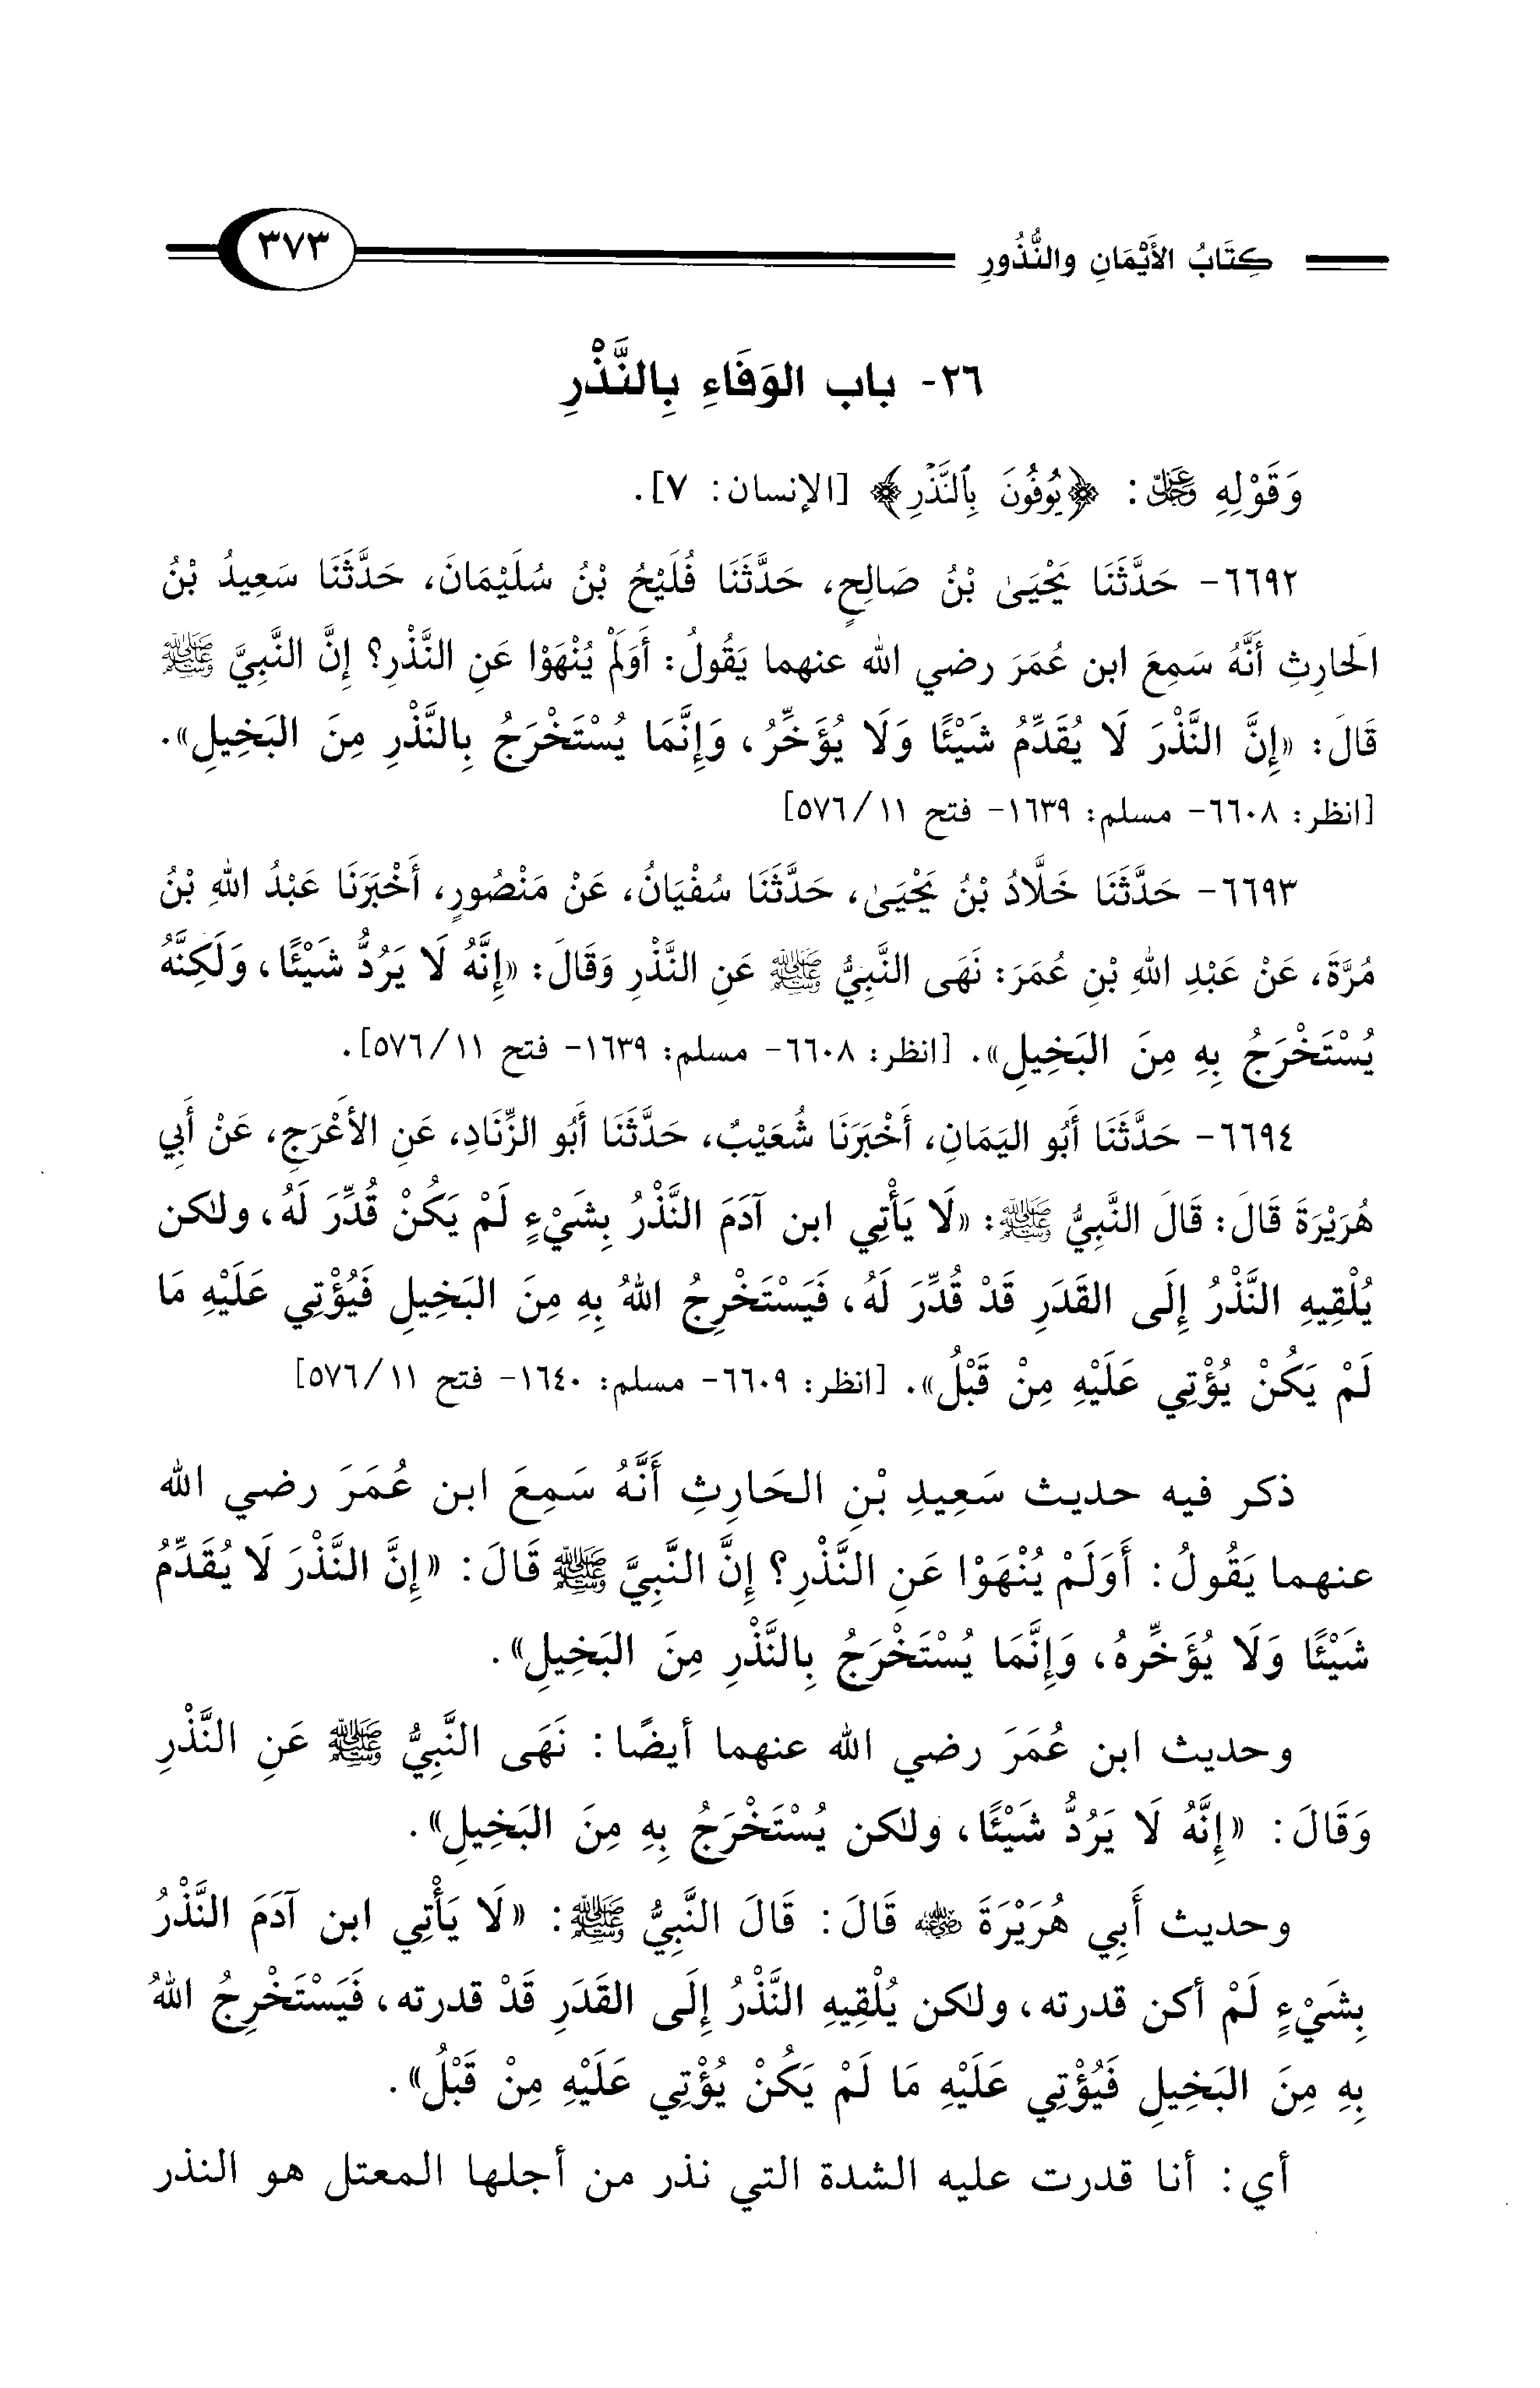 كِتَابُ الأَيْمَانِ والنُّذُورِ
٣٧٣
٢٦- باب الوَفَاءِ بِالنَّذْرِ
وَقَوْلِهِ ﷿: ﴿يُوفُونَ بِٱلنَّذْرِ﴾ [الإنسان: ٧].
٦٦٩٢- حَدَّثَنَا يَحْيَىٰ بْنُ صَالِحٍ، حَدَّثَنَا فُلَيْحُ بْنُ سُلَيْمَانَ، حَدَّثَنَا سَعِيدُ بْنُ
الَحارِثِ أَنَّهُ سَمِعَ ابن عُمَرَ رضي الله عنهما يَقُولُ: أَوَلَمْ يُنْهَوْا عَنِ النَّذْرِ؟ إِنَّ النَّبِيَّ ﷺ
قَالَ: «إِنَّ النَّذْرَ لَا يُقَدِّمُ شَيْئًا وَلَا يُؤَخِّرُ، وَإِنَّمَا يُسْتَخْرَجُ بِالنَّذْرِ مِنَ البَخِيلِ».
[انظر: ٦٦٠٨- مسلم: ١٦٣٩- فتح ١١/٥٧٦]
٦٦٩٣- حَدَّثَنَا خَلَّادُ بْنُ يَحْيَىٰ، حَدَّثَنَا سُفْيَانُ، عَنْ مَنْصُورٍ، أَخْبَرَنَا عَبْدُ اللهِ بْنُ
مُرَّةَ، عَنْ عَبْدِ اللهِ بْنِ عُمَرَ: نَهَى النَّبِيُّ ﷺ عَنِ النَّذْرِ وَقَالَ: «إِنَّهُ لَا يَرُدُّ شَيْئًا، وَلَكِنَّهُ
يُسْتَخْرَجُ بِهِ مِنَ البَخِيلِ». [انظر: ٦٦٠٨- مسلم: ١٦٣٩- فتح ١١/٥٧٦].
٦٦٩٤- حَدَّثَنَا أَبُو اليَمَانِ، أَخْبَرَنَا شُعَيْبٌ، حَدَّثَنَا أَبُو الزِّنَادِ، عَنِ الأَعْرَجِ، عَنْ أَبِي
هُرَيْرَةَ قَالَ: قَالَ النَّبِيُّ ﷺ: «لَا يَأْتِي ابن آدَمَ النَّذْرُ بِشَيْءٍ لَمْ يَكُنْ قُدِّرَ لَهُ، ولكن
يُلْقِيهِ النَّذْرُ إِلَى القَدَرِ قَدْ قُدِّرَ لَهُ، فَيَسْتَخْرِجُ اللهُ بِهِ مِنَ البَخِيلِ فَيُؤْتِي عَلَيْهِ مَا
لَمْ يَكُنْ يُؤْتِي عَلَيْهِ مِنْ قَبْلُ». [انظر: ٦٦٠٩- مسلم: ١٦٤٠- فتح ١١/٥٧٦]
ذكر فيه حديث سَعِيدِ بْنِ الحَارِثِ أَنَّهُ سَمِعَ ابن عُمَرَ رضي الله
عنهما يَقُولُ: أَوَلَمْ يُنْهَوْا عَنِ النَّذْرِ؟ إِنَّ النَّبِيَّ ﷺ قَالَ: «إِنَّ النَّذْرَ لَا يُقَدِّمُ
شَيْئًا وَلَا يُؤَخِّرُهُ، وَإِنَّمَا يُسْتَخْرَجُ بِالنَّذْرِ مِنَ البَخِيلِ».
وحديث ابن عُمَرَ رضي الله عنهما أيضًا: نَهَى النَّبِيُّ ﷺ عَنِ النَّذْرِ
وَقَالَ: «إِنَّهُ لَا يَرُدُّ شَيْئًا، ولكن يُسْتَخْرَجُ بِهِ مِنَ البَخِيلِ».
وحديث أَبِي هُرَيْرَةَ رضي الله عنه قَالَ: قَالَ النَّبِيُّ ﷺ: «لَا يَأْتِي ابن آدَمَ النَّذْرُ
بِشَيْءٍ لَمْ أكن قدرته، ولكن يُلْقِيهِ النَّذْرُ إِلَى القَدَرِ قَدْ قدرته، فَيَسْتَخْرِجُ اللهُ
بِهِ مِنَ البَخِيلِ فَيُؤْتِي عَلَيْهِ مَا لَمْ يَكُنْ يُؤْتِي عَلَيْهِ مِنْ قَبْلُ».
أي: أنا قدرت عليه الشدة التي نذر من أجلها المعتل هو النذر